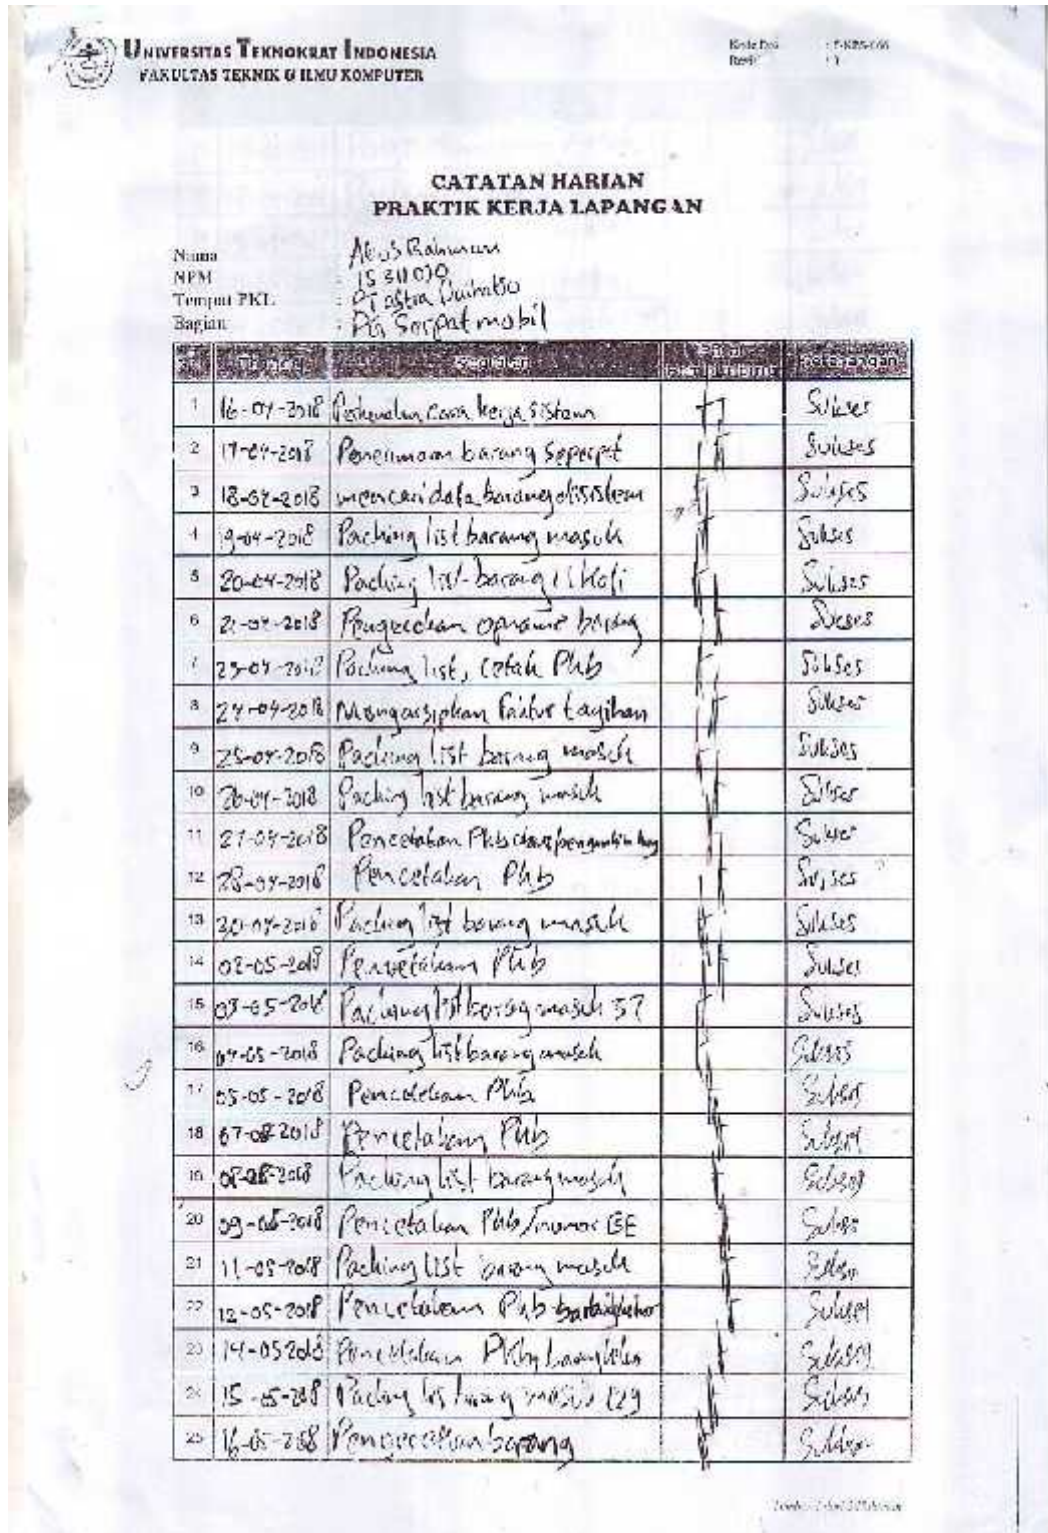 UNIVERSITAS TEKNOKRAT INDONESIA
FAKULTAS TEKNIK & ILMU KOMPUTER
CATATAN HARIAN
PRAKTIK KERJA LAPANGAN
Nama :
NPM : 15311070
Tempat PKL : Pt astra Daihatsu
Bagian : mobil
Kegiatan Keterangan
1 16-04-2018 cara kerja sistem Sukses
2 17-04-2018 Penerimaan barang Seperpat Sukses
3 18-04-2018 mencari data barang disistem Sukses
4 19-04-2018 Packing list barang masuk Sukses
5 20-04-2018 Packing list barang Sukses
6 21-04-2018 Pengecekan opname barang Sukses
7 23-04-2018 Packing list, cetak Pkb Sukses
8 24-04-2018 Mengarsipkan faktur tagihan Sukses
9 25-04-2018 Packing list barang masuk Sukses
10 26-04-2018 Packing list barang masuk Sukses
11 27-04-2018 Pencetakan Pkb Sukses
12 28-04-2018 Pencetakan Pkb Sukses
13 30-04-2018 Packing list barang masuk Sukses
14 02-05-2018 Pencetakan Pkb Sukses
15 03-05-2018 Packing list barang masuk 37 Sukses
16 04-05-2018 Packing list barang masuk Sukses
17 05-05-2018 Pencetakan Pkb Sukses
18 Pencetakan Pkb Sukses
19 Packing list barang masuk Sukses
20 09-05-2018 Pencetakan Pkb/nomor Sukses
21 11-05-2018 Packing list barang masuk Sukses
22 12-05-2018 Pencetakan Pkb Sukses
23 14-05-2018 Pencetakan Sukses
24 15-05-2018 Packing list barang masuk 129 Sukses
25 16-05-2018 Pengecekan barang Sukses